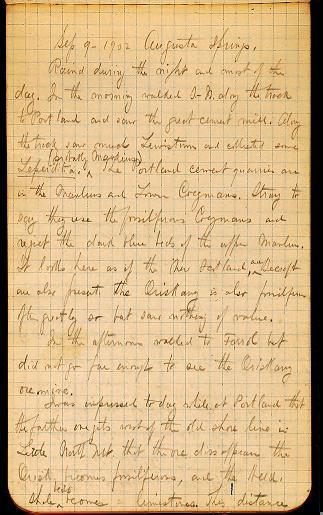 Sep 9 - 1902 Augusta Springs.
Rained during the night and most of the
day. In the morning walked along the track
to Portland and saw the great cement mill. Along
the track saw much Lewistown and collected some
(probably Manlius)
Leperditia. The Portland cement quarries are
in the Manlius and Lower Coeymans. Strange to
say they use the fossiliferous Coeymans and
reject the dark blue beds of the upper Manlius.
It looks here as if the New Scotland and Becraft
are also present. The Oriskany is also fossiliferous
but saw nothing of value.
In the afternoon walked to Ferrol but
did not go far enough to see the Oriskany
ore mine.
I was impressed today while at Portland that
the farther one gets west of the old shore line in
Little North Mt. that the ore disappears the
Orisk. becomes fossiliferous, and the Held.
shale beds becomes limestones. This distance